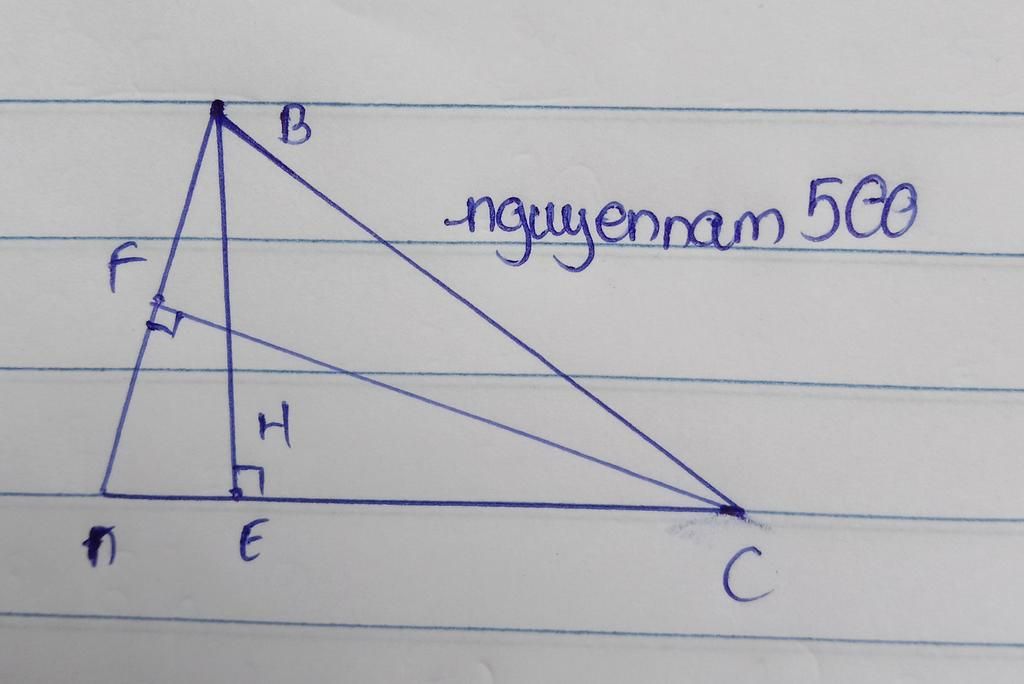 B
nguyennam 500
F
H
A
E
C